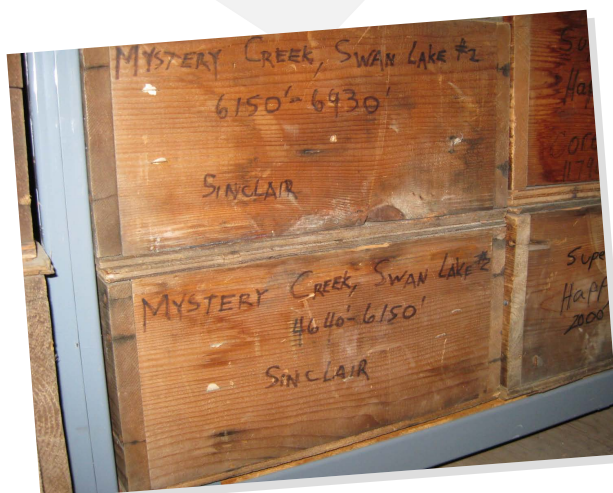 MYSTERY CREEK, SWAN LAKE #2
6150'- 6930'
SINCLAIR
MYSTERY CREEK, SWAN LAKE #2
4640'- 6150'
SINCLAIR
Su
Ha
Cor
1179
Supe
Happ
2000'